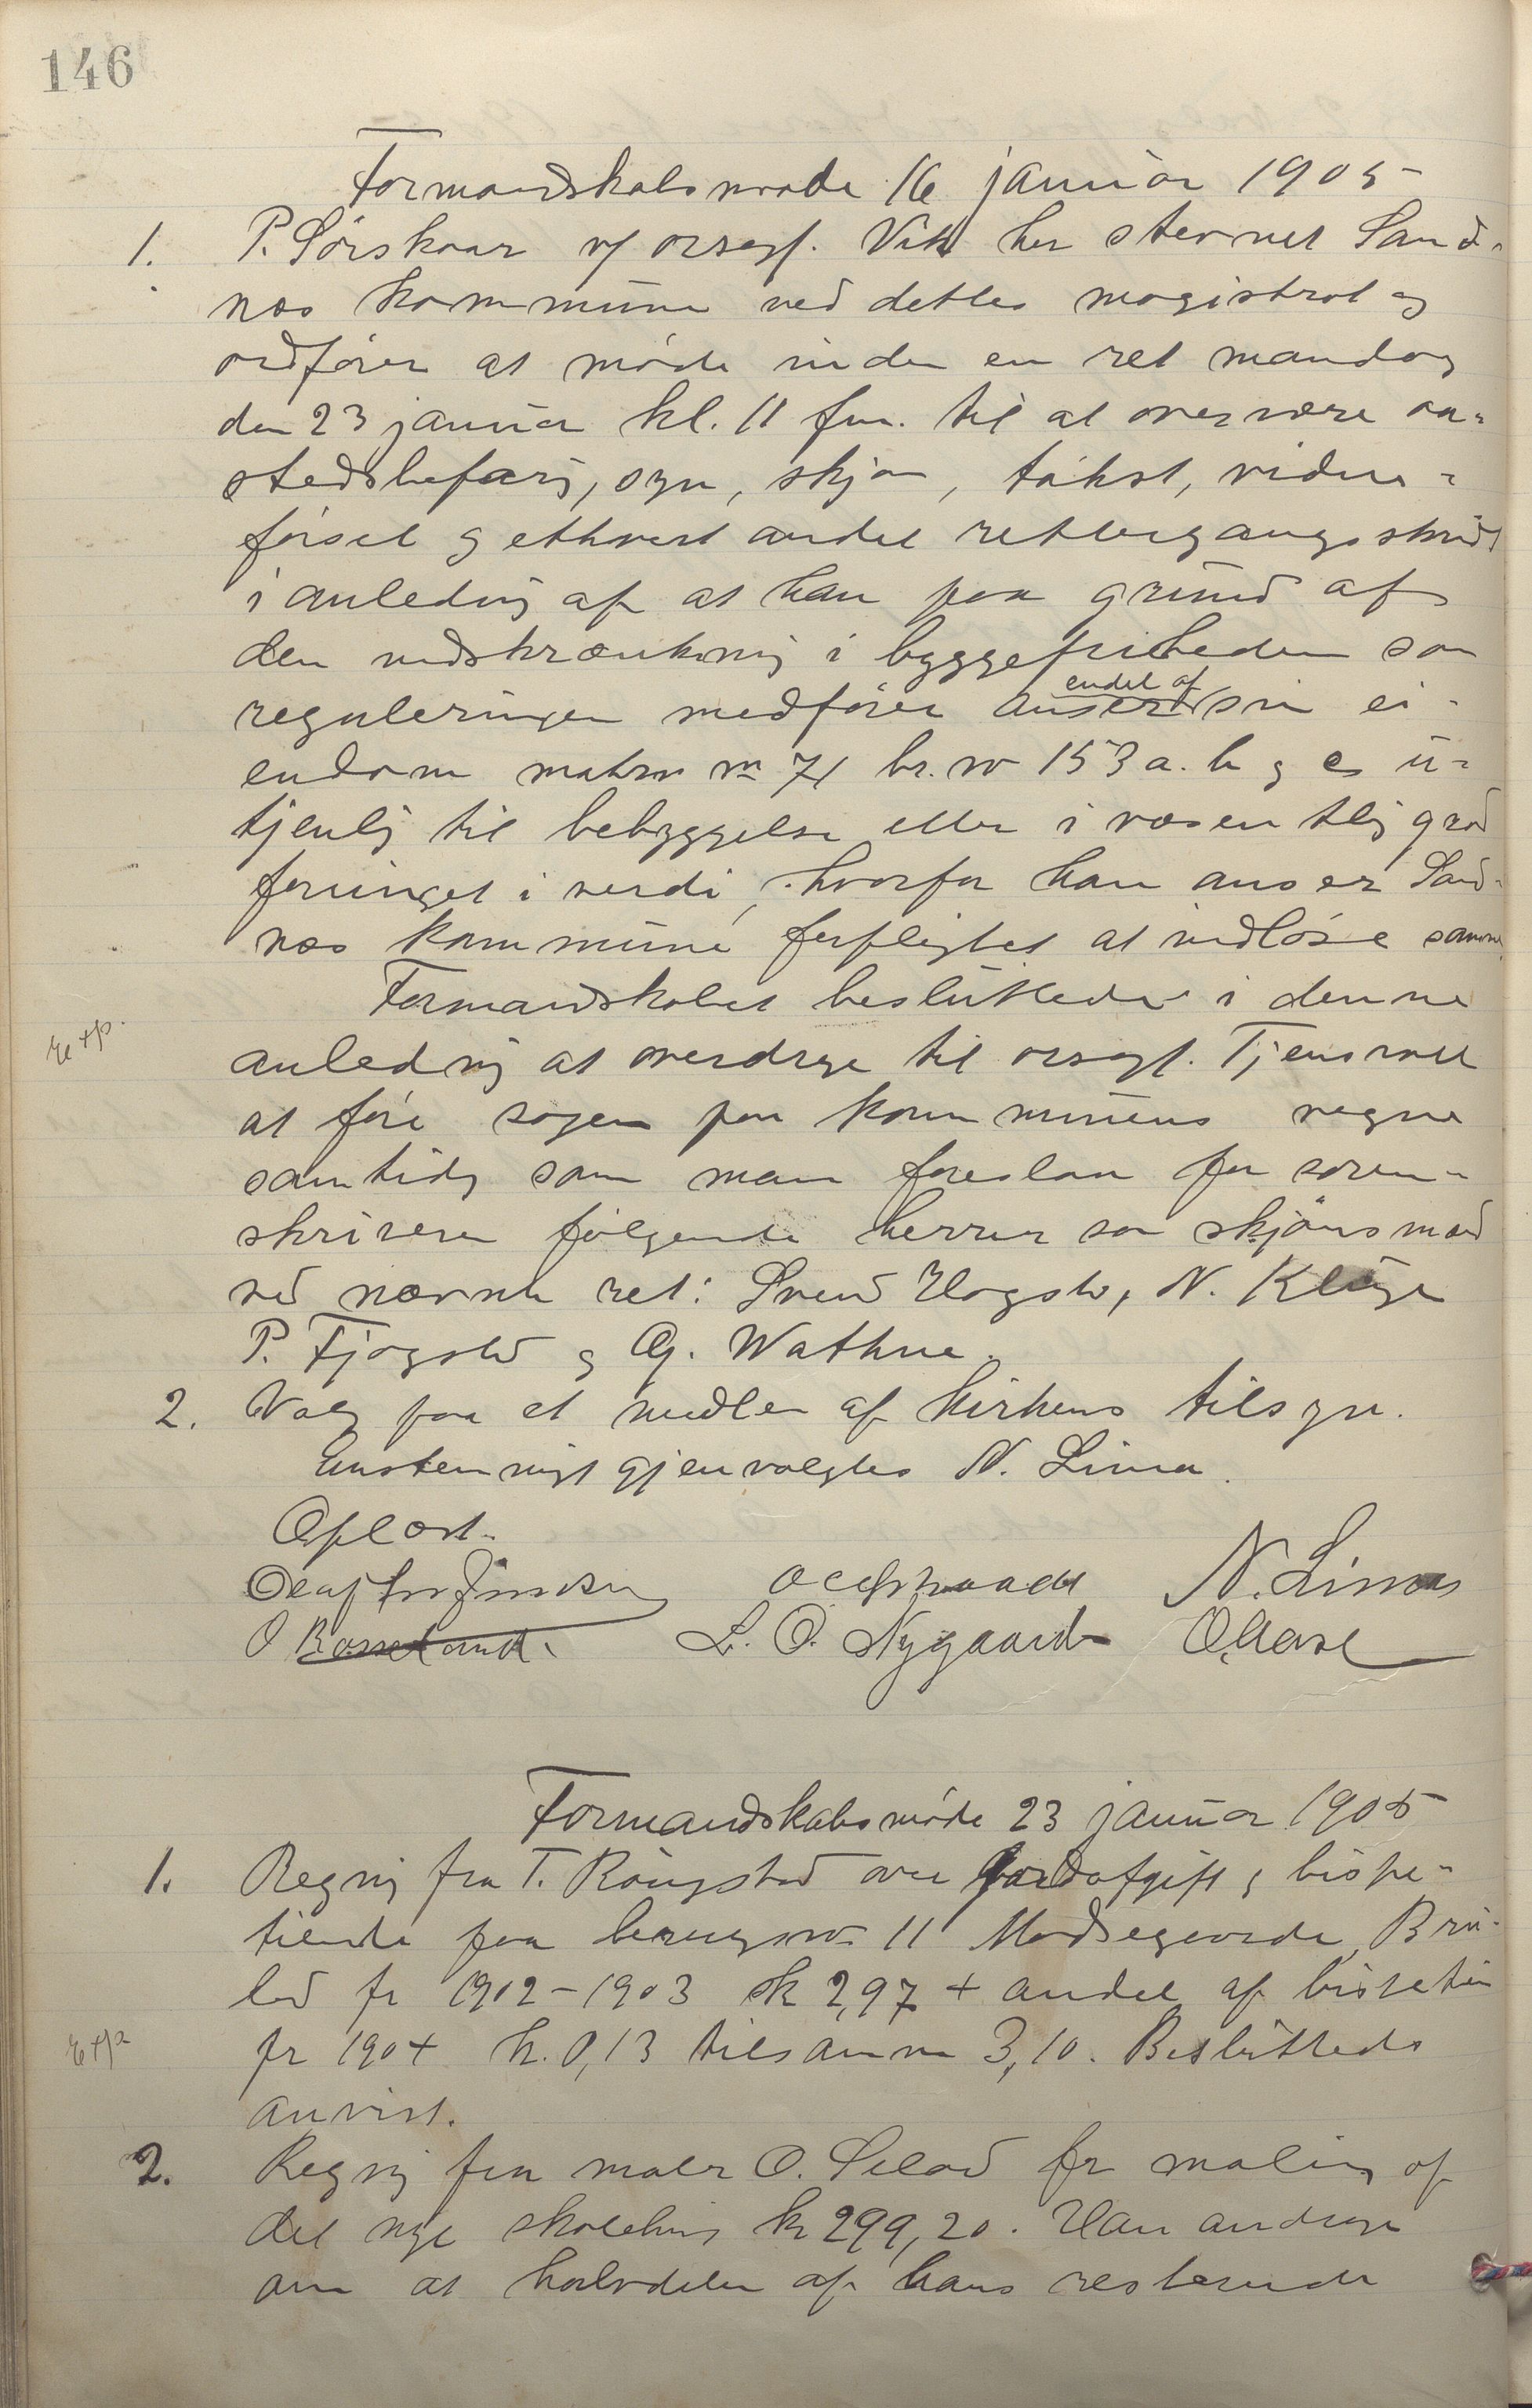 146
Formandskabsmøde 16 januar 1905
1. P. Sörskaar v/ orsagf. Vik har stevnet Sand-
næs kommune ved dettes magistrat og
ordförer at möde inden en ret mandag
den 23 januar kl. 11 fm. til at overvære aa-
stedsbefaring, syn, skjøn, takst, vidne-
försel og ethvert andet rettergangsskridt
i anledning af at han paa grund af
den indskrænkning i byggefriheden som
reguleringen medförer anser endel af sin ei-
endom matr no 71 br. no 153 a. b og c u-
tjenlig til bebyggelse eller i væsentlig grad
forringet i verdi, hvorfor han anser Sand-
næs kommune forpligtet at indlöse samme.
Formandskabet besluttede i denne
Exp.
anledning at overdrage til orsagf. Tjensvoll
at före sagen paa kommunens vegne
samtidig som man foreslaar for soren-
skriveren fölgende herrer som skjönsmænd
ved nævnte ret: Svend Hogstad, N. Kluge
P. Fjogstad og Gj. Wathne.
2. Valg paa et medlem af kirkens tilsyn.
Enstemmigt gjenvalgtes N. Lima.
Oplæst.
N. Lima
O Rosseland. L. O. Nygaard O. Aase
Formandskabsmöde 23 januar 1905
1. Regning fra T. Ringstad over jordafgift og bispe-
tiende paa brugsno 11 Madsegaarde, Brue-
land for 1902-1903 kr 2,97 + andel af bispetiende
Exp
for 1904 kr. 0,13 tilsammen 3,10. Besluttedes
anvist.
2. Regning fra maler O. Selad for maling af
det nye skolehus kr 299,20. Han andrager
om at halvdelen af hans resterende